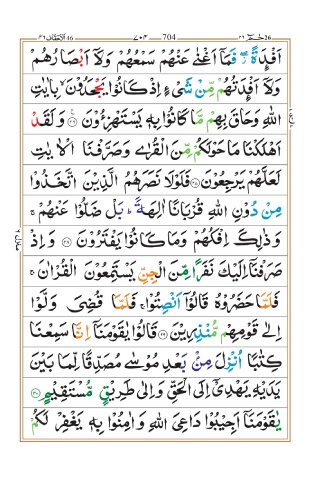 حٰمٓ ٢٦ 704 ٧٠٤ الاحقاف ٤٦
اَفْـِٕدَةً ۖ فَمَاۤ اَغْنٰى عَنْهُمْ سَمْعُهُمْ وَلَاۤ اَبْصَارُهُمْ
وَلَاۤ اَفْـِٕدَتُهُمْ مِّنْ شَیْءٍ اِذْ كَانُوْا یَجْحَدُوْنَ ۙ بِاٰیٰتِ
اللّٰهِ وَحَاقَ بِهِمْ مَّا كَانُوْا بِهٖ یَسْتَهْزِءُوْنَ ﴿۲۶﴾ وَلَقَدْ
اَهْلَكْنَا مَا حَوْلَكُمْ مِّنَ الْقُرٰى وَصَرَّفْنَا الْاٰیٰتِ
لَعَلَّهُمْ یَرْجِعُوْنَ ﴿۲۷﴾ فَلَوْلَا نَصَرَهُمُ الَّذِیْنَ اتَّخَذُوْا
مِنْ دُوْنِ اللّٰهِ قُرْبَانًا اٰلِهَةً ؕ بَلْ ضَلُّوْا عَنْهُمْ ۚ
وَذٰلِكَ اِفْكُهُمْ وَمَا كَانُوْا یَفْتَرُوْنَ ﴿۲۸﴾ وَاِذْ
صَرَفْنَاۤ اِلَیْكَ نَفَرًا مِّنَ الْجِنِّ یَسْتَمِعُوْنَ الْقُرْاٰنَ ۚ
فَلَمَّا حَضَرُوْهُ قَالُوْۤا اَنْصِتُوْا ۚ فَلَمَّا قُضِیَ وَلَّوْا
اِلٰى قَوْمِهِمْ مُّنْذِرِیْنَ ﴿۲۹﴾ قَالُوْا یٰقَوْمَنَاۤ اِنَّا سَمِعْنَا
كِتٰبًا اُنْزِلَ مِنْۢ بَعْدِ مُوْسٰى مُصَدِّقًا لِّمَا بَیْنَ
یَدَیْهِ یَهْدِیْۤ اِلَى الْحَقِّ وَاِلٰى طَرِیْقٍ مُّسْتَقِیْمٍ ﴿۳۰﴾
یٰقَوْمَنَاۤ اَجِیْبُوْا دَاعِیَ اللّٰهِ وَاٰمِنُوْا بِهٖ یَغْفِرْ لَكُمْ